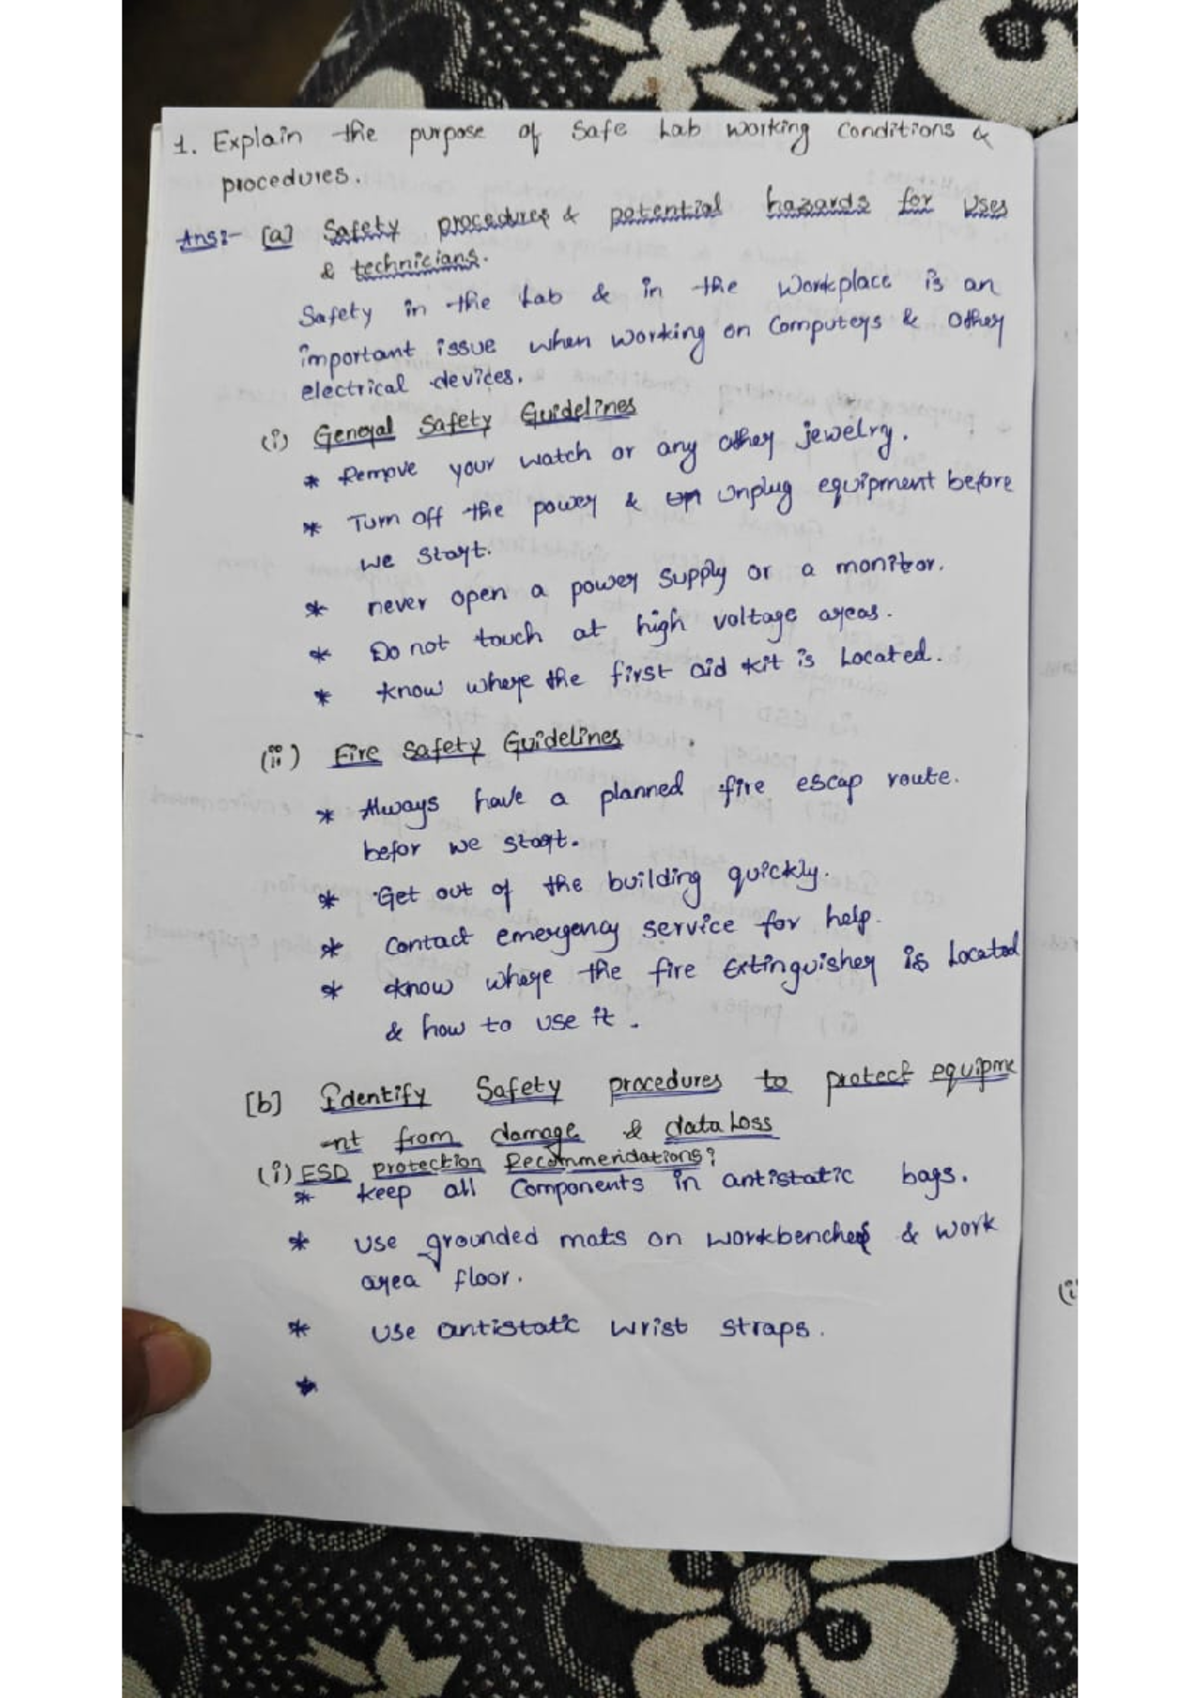 1. Explain the purpose of Safe Lab working Conditions &
procedures.
Ans:- [a] Safety procedures & potential hazards for Uses
& technicians.
Safety in the Lab & in the Workplace is an
important issue when working on Computers & Other
electrical devices.
(i) General Safety Guidelines
* Remove your watch or any other jewelry.
* Turn off the power & Un Unplug equipment before
we start.
* never open a power supply or a monitor.
* Do not touch at high voltage areas.
* know where the first aid kit is Located.
(ii) Fire Safety Guidelines
* Always have a planned fire escap route.
befor we start.
* Get out of the building quickly.
* Contact emergency service for help.
* know where the fire Extinguisher is Located
& how to use it.
[b] Identify Safety procedures to protect equipme
-nt from damage & data Loss
(i) ESD protection Recommendations:
* keep all Components in antistatic bags.
* Use grounded mats on workbenches & work
area floor.
* Use antistatic wrist straps.
*
(i